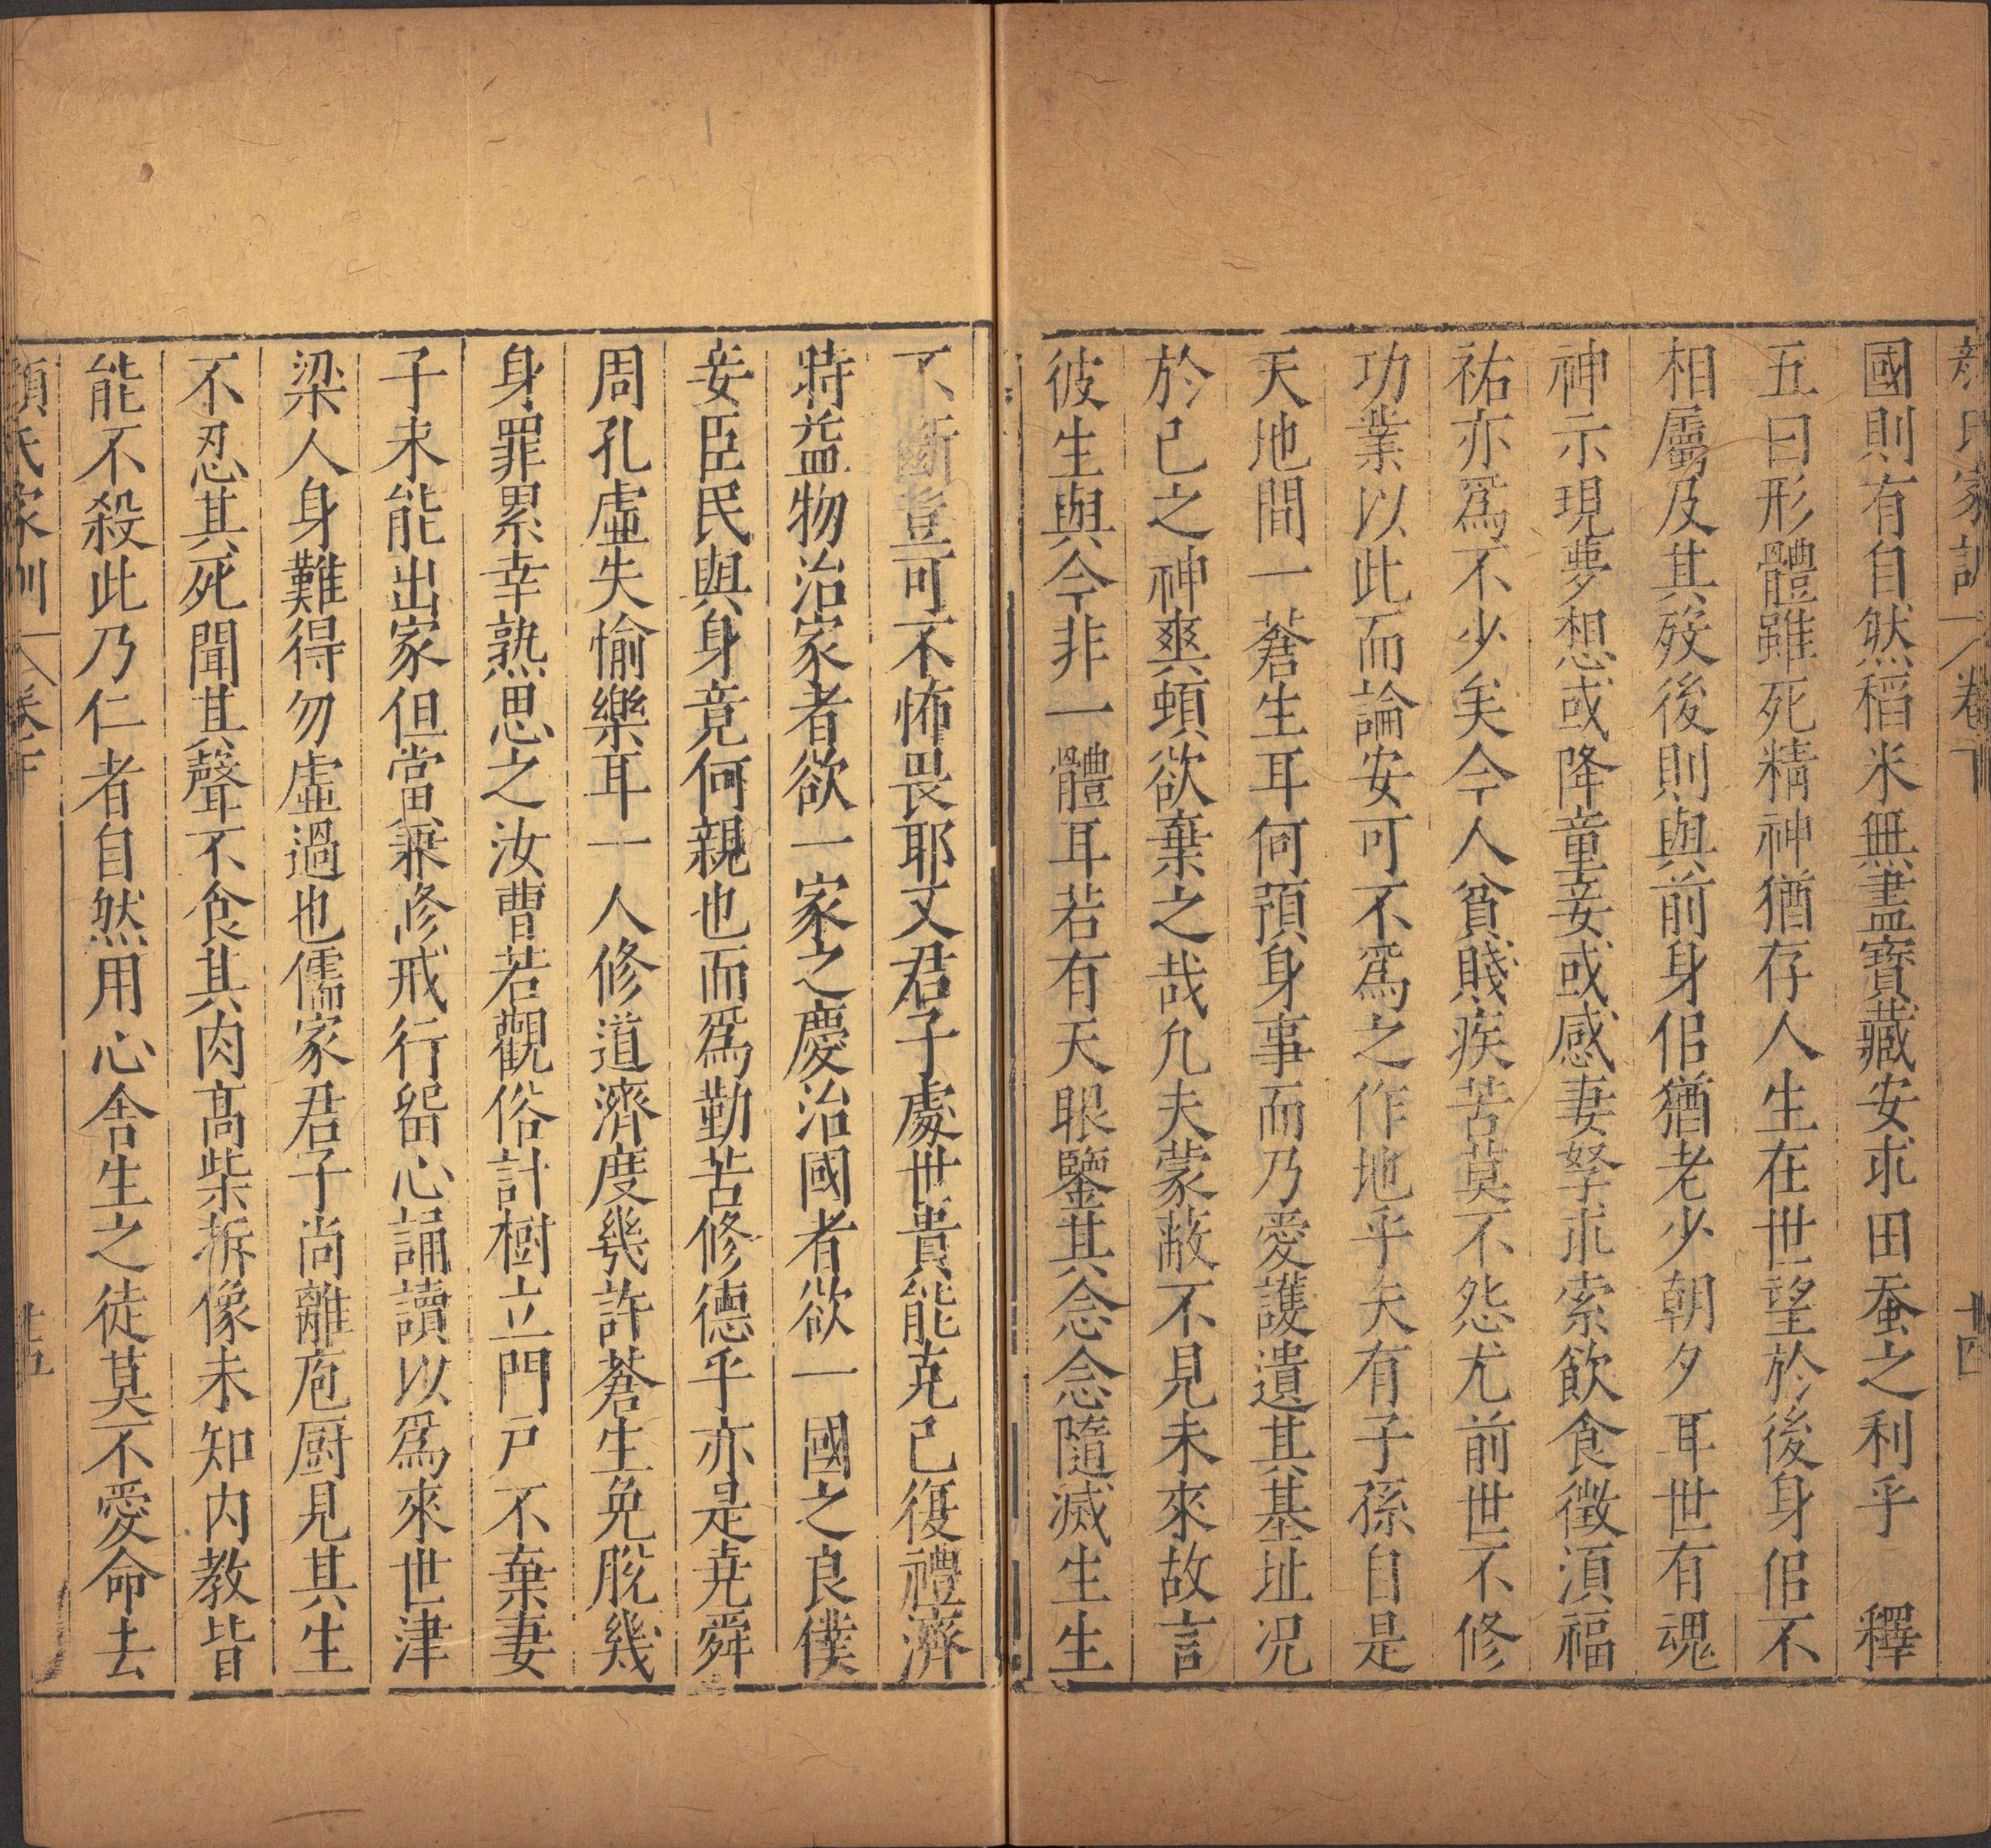 顏氏家訓 卷下 廿四
國則有自然稻米無盡寶藏安求田蚕之利乎 釋
五曰形體雖死精神猶存人生在世望於後身佀不
相屬及其殁後則與前身佀猶老少朝夕耳世有魂
神示現夢想或降童妾或感妻孥求索飲食徵湏福
祐亦爲不少矣今人貧賤疾苦莫不怨尤前世不修
功業以此而論安可不爲之作地乎夫有子孫自是
天地間一蒼生耳何預身事而乃愛護遺其基址况
於已之神爽頓欲棄之哉凢夫蒙蔽不見未來故言
彼生與今非一體耳若有天眼鑒其念念隨滅生生
不斷豈可不怖畏耶又君子處世貴能克已復禮濟
時益物治家者欲一家之慶治國者欲一國之良僕
妾臣民與身竟何親也而爲勤苦修德乎亦是尭舜
周孔虛失愉樂耳一人修道濟度幾許蒼生免脫幾
身罪累幸熟思之汝曹若觀俗計樹立門戶不棄妻
子未能出家但當兼修戒行留心誦讀以爲來世津
梁人身難得勿虛過也儒家君子尚離庖厨見其生
不忍其死聞其聲不食其肉高柴折像未知內教皆
能不殺此乃仁者自然用心含生之徒莫不愛命去
顏氏家訓 卷下 廿五